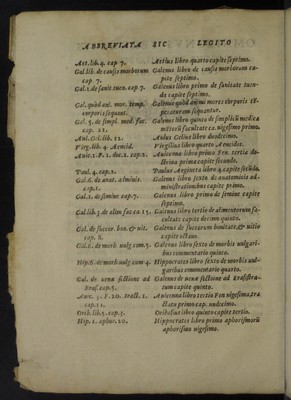 ABBREVIATA SIC LEGITO
Aet. lib. 4. cap 7. Aetius libro quarto capite septimo.
Gal. lib. de causis morborum cap 7. Galenus libro de causis morborum capite septimo.
Gal. 1. de sanit. tuen. cap 7. Galenus libro primo de sanitate tuenda capite septimo.
Gal. quòd ani. mor. temp. corporis sequant. Galenus quòd animi mores corporis temperaturam sequantur.
Gal. 5. de simpl. med. fac. cap. 21. Galenus libro quinto de simpliciũ medicamentorũ facultate ca. vigesimo primo.
Aul. Cel. lib. 12. Aulus Celius libro duodecimo.
Virg. lib. 4. Aeneid. Virgilius libro quarto Aeneidos.
Auic. 1. P. 1. doc. 2. cap. 2. Auicenna libro primo Fen. tertia doctrina prima capite secundo.
Paul. 4. cap. 2. Paulus Aegineta libro 4. capite secũdo.
Gal. 6. de anat. adminis. cap. 1. Galenus libro sexto de anatomicis administrationibus capite primo.
Gal. 1. de semine cap 7. Galenus libro primo de semine capite septimo.
Gal. lib. 3. de alim fac ca 15. Galenus libro tertio de alimentorum facultate capite decimo quinto.
Gal. de succor. bon. & uit. cap. 8. Galenus de succorum bonitate, & uitio capite octauo.
Gal. 6. de morb. uulg. com. 5. Galenus libro sexto de morbis uulgaribus commentario quinto.
Hip. 6. de morb. uulg. com 4. Hippocrates libro sexto de morbis uulgaribus commentario quarto.
Gal. de uenæ sectione ad Erasi. cap. 5. Galenus de uenæ sectione ad Erasistratum capite quinto.
Auic. 3. F. 20. tract. 1. cap. 11. Auicenna libro tertio Fen uigesima tractatu primo cap. undecimo.
Orib. lib. 5. cap. 3. Oribasius libro quinto capite tertio.
Hip. 1. aphor. 20. Hippocrates libro primo aphorismorũ aphorismo uigesimo.